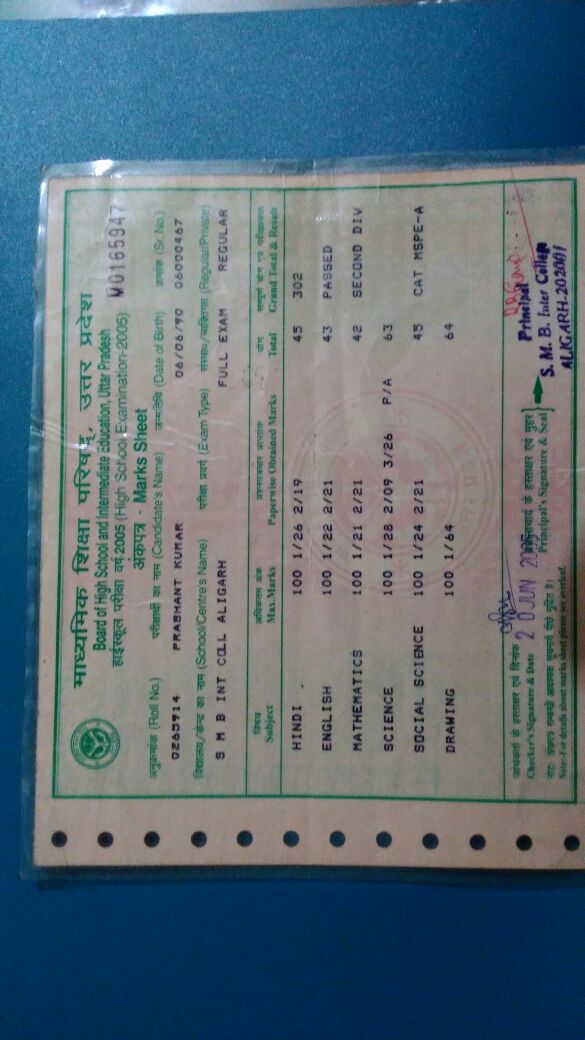 M0165947
माध्यमिक शिक्षा परिषद्, उत्तर प्रदेश
Board of High School and Intermediate Education, Uttar Pradesh
हाईस्कूल परीक्षा वर्ष 2005 (High School Examination-2005)
अंकपत्र - Marks Sheet
अनुक्रमांक (Roll No.) परीक्षार्थी का नाम (Candidate's Name) जन्मतिथि (Date of Birth) क्रमांक (Sr. No.)
0265914 PRASHANT KUMAR 06/06/90 06000467
विद्यालय/केन्द्र का नाम (School/Centre's Name) परीक्षा प्रकार (Exam Type) संस्थागत/व्यक्तिगत (Regular/Private)
S M B INT COLL ALIGARH FULL EXAM - REGULAR
विषय अधिकतम अंक प्रश्नपत्रवार प्राप्तांक योग सम्पूर्ण योग एवं परीक्षाफल
Subject Max.Marks Paperwise Obtained Marks Total Grand Total & Result
HINDI 100 1/26 2/19 45 302
ENGLISH 100 1/22 2/21 43 PASSED
MATHEMATICS 100 1/21 2/21 42 SECOND DIV
SCIENCE 100 1/28 2/09 3/26 P/A 63
SOCIAL SCIENCE 100 1/24 2/21 45 CAT MSPE-A
DRAWING 100 1/64 64
जांचकर्ता के हस्ताक्षर एवं दिनांक प्रधानाचार्य के हस्ताक्षर एवं मुहर
Checker's Signature & Date 20 JUN 2005 Principal's Signature & Seal
Principal
S. M. B. Inter College
ALIGARH-202001
Note:-For details about marks sheet please see overleaf.